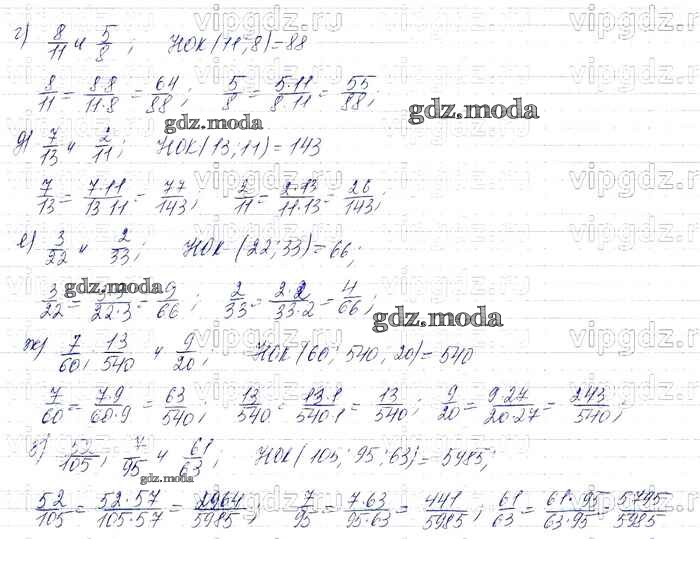 г) 8/11 и 5/8; НОК(11;8)=88
8/11 = 8·8/11·8 = 64/88; 5/8 = 5·11/8·11 = 55/88;
gdz.moda
gdz.moda
д) 7/13 и 2/11; НОК(13,11)=143
7/13 = 7·11/13·11 = 77/143; 2/11 = 2·13/11·13 = 26/143;
е) 3/22 и 2/33; НОК (22;33)=66;
gdz.moda
3/22 = 3·3/22·3 = 9/66; 2/33 = 2·2/33·2 = 4/66;
gdz.moda
ж) 7/60, 13/540 и 9/20; НОК(60; 540, 20)=540
7/60 = 7·9/60·9 = 63/540; 13/540 = 13·1/540·1 = 13/540; 9/20 = 9·27/20·27 = 243/540;
з) 52/105, 7/95 и 61/63; НОК(105; 95; 63)=5985;
gdz.moda
52/105 = 52·57/105·57 = 2964/5985; 7/95 = 7·63/95·63 = 441/5985; 61/63 = 61·95/63·95 = 5795/5985
vipgdz.ru
vipgdz.ru
vipgdz.ru
vipgdz.ru